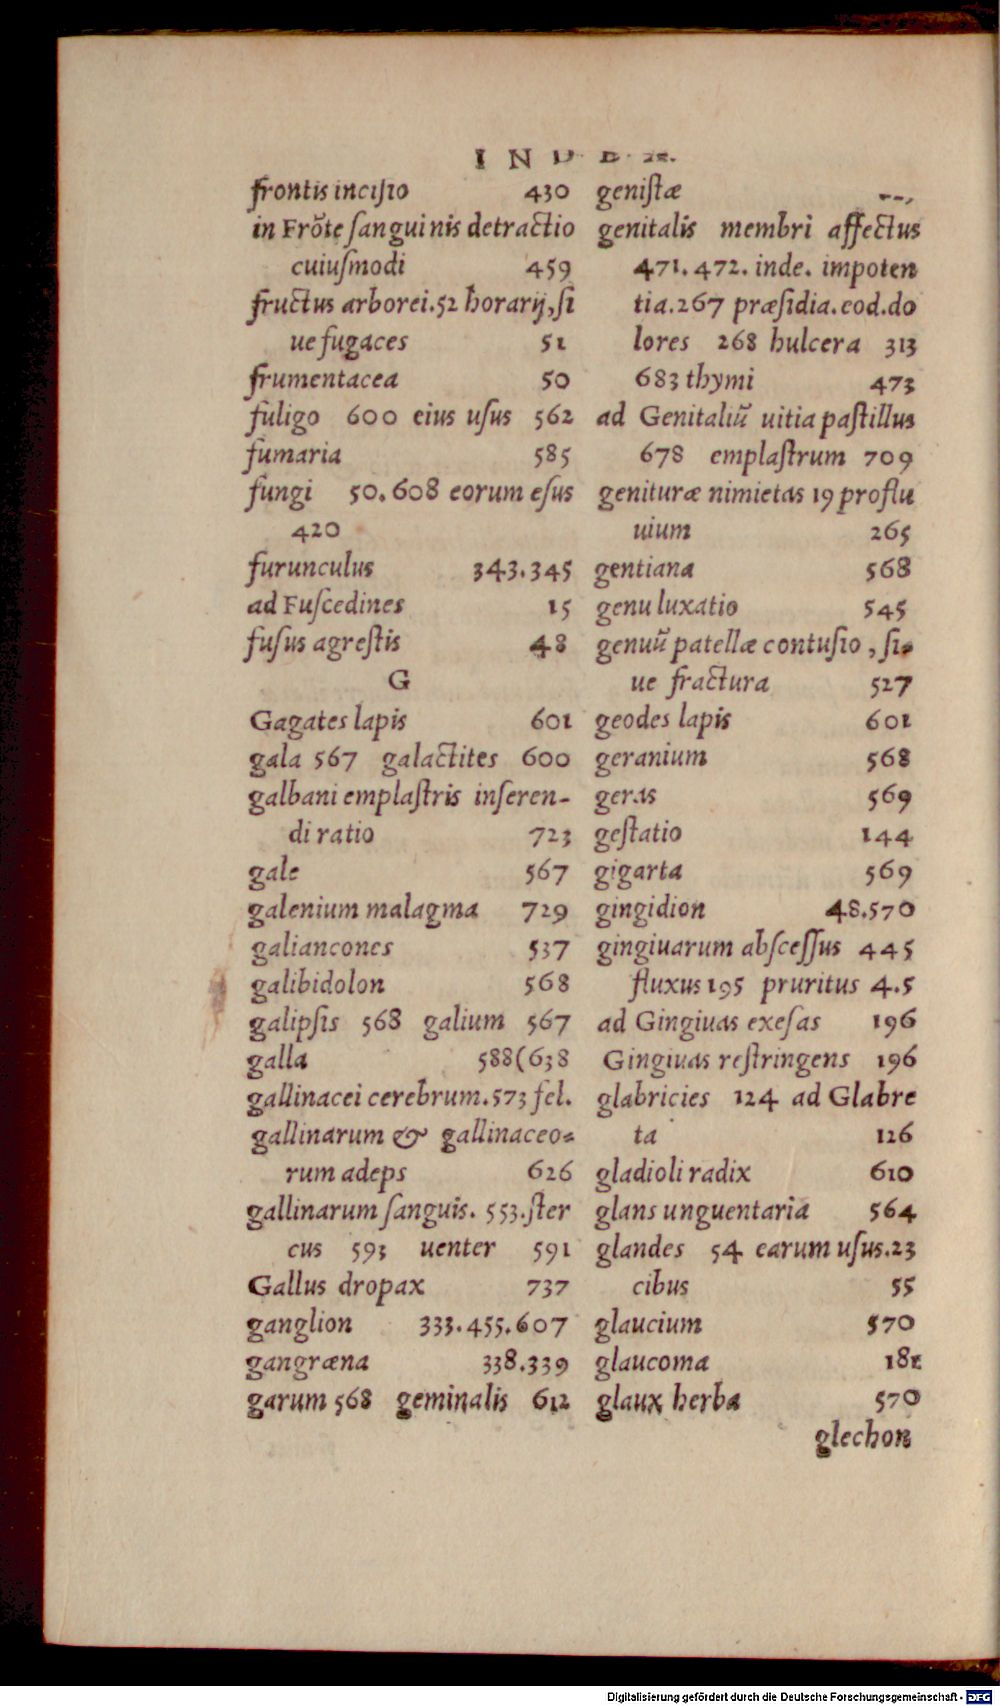 INDEX.
frontis incisio 430
in Frōte sanguinis detractio
cuiusmodi 459
fructus arborei.52 horarij,si
ue fugaces 51
frumentacea 50
fuligo 600 eius usus 562
fumaria 585
fungi 50.608 eorum esus
420
furunculus 343.345
ad Fuscedines 15
fusus agrestis 48
G
Gagates lapis 601
gala 567 galactites 600
galbani emplastris inseren-
di ratio 723
gale 567
galenium malagma 729
galiancones 537
galibidolon 568
galipsis 568 galium 567
galla 588(638
gallinacei cerebrum.573 fel.
gallinarum & gallinaceo-
rum adeps 626
gallinarum sanguis. 553.ster
cus 593 uenter 591
Gallus dropax 737
ganglion 333.455.607
gangræna 338.339
garum 568 geminalis 612
genistæ
genitalis membri affectus
471.472. inde. impoten
tia.267 præsidia.eod.do
lores 268 hulcera 313
683 thymi 473
ad Genitaliū uitia pastillus
678 emplastrum 709
genituræ nimietas 19 proflu
uium 265
gentiana 568
genu luxatio 545
genuū patellæ contusio, si-
ue fractura 527
geodes lapis 601
geranium 568
geras 569
gestatio 144
gigarta 569
gingidion 48.570
gingiuarum abscessus 445
fluxus 195 pruritus 4.5
ad Gingiuas exesas 196
Gingiuas restringens 196
glabricies 124 ad Glabre
ta 126
gladioli radix 610
glans unguentaria 564
glandes 54 earum usus.23
cibus 55
glaucium 570
glaucoma 181
glaux herba 570
glechon
Digitalisierung gefördert durch die Deutsche Forschungsgemeinschaft - DFG